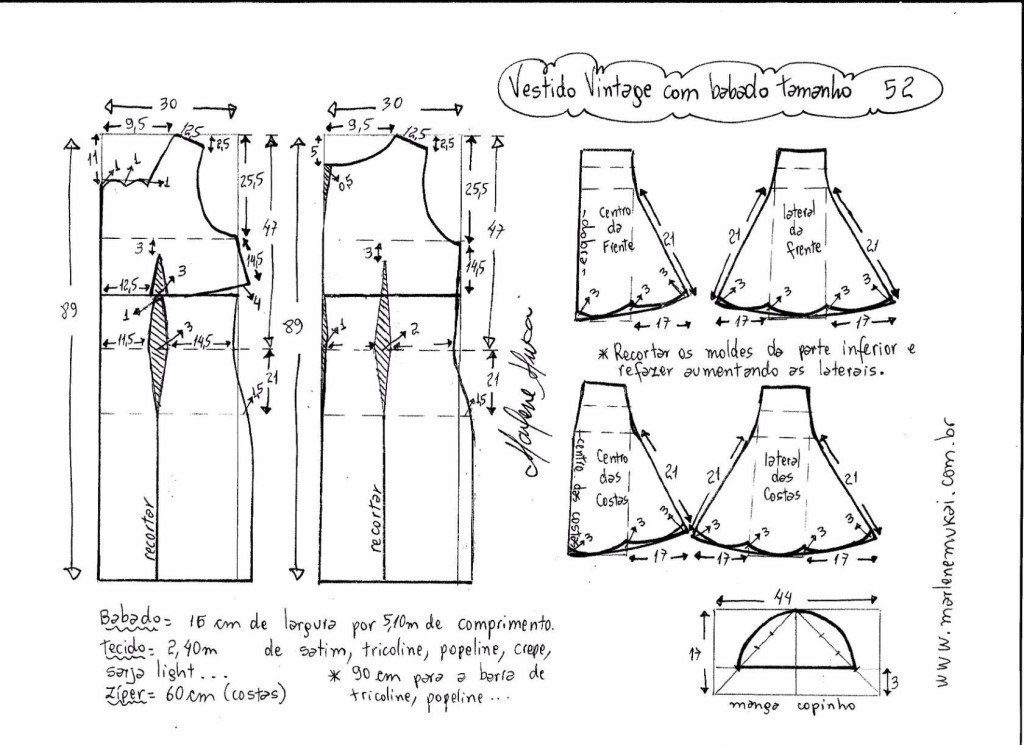 Vestido Vintage com babado tamanho 52
30
9,5
2,5
2,5
11
1
1
1
25,5
47
3
14,5
12,5
3
4
1
89
11,5
3
14,5
21
1,5
recortar
30
9,5
2,5
2,5
5
0,5
25,5
47
3
14,5
89
1
2
21
1,5
recortar
Marlene Mukai
- dobra -
Centro
da
Frente
21
3
3
3
17
lateral
da
frente
21
21
3
3
3
17
* Recortar os moldes da parte inferior e
refazer aumentando as laterais.
centro das costas
Centro
das
Costas
21
3
3
3
17
lateral
das
Costas
21
21
3
3
3
17
Babado = 15 cm de largura por 5,10m de comprimento.
tecido = 2,40m de satim, tricoline, popeline, crepe,
sarja light... * 90 cm para a barra de
zíper = 60 cm (costas) tricoline, popeline...
44
17
3
manga copinho
www.marlenemukai.com.br